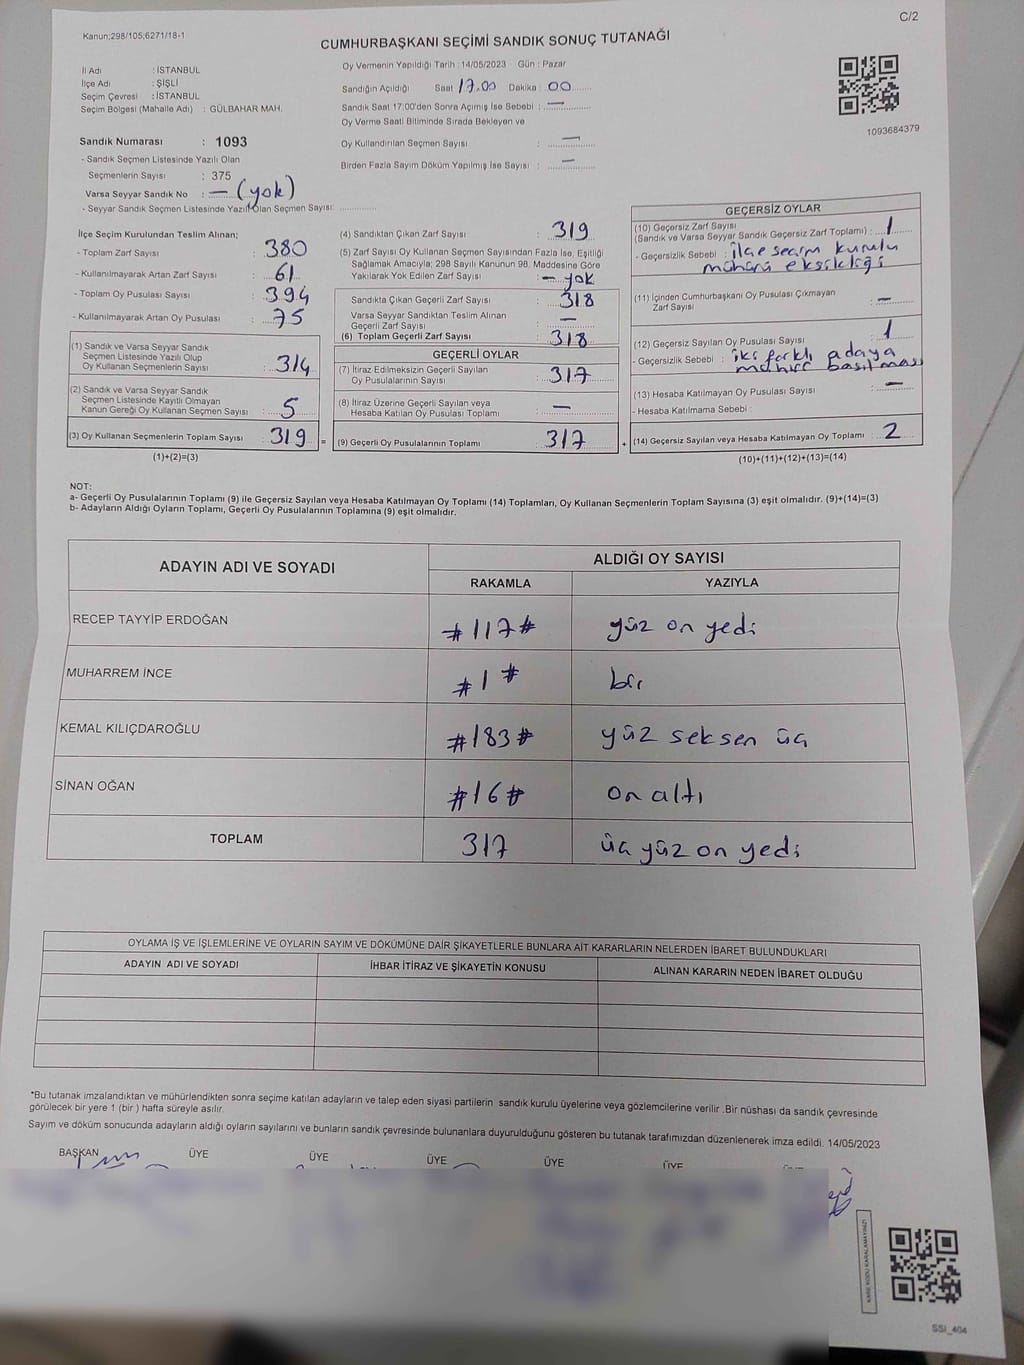 C/2
Kanun;298/105;6271/18-1
CUMHURBAŞKANI SEÇİMİ SANDIK SONUÇ TUTANAĞI
İl Adı : İSTANBUL
İlçe Adı : ŞİŞLİ
Seçim Çevresi : İSTANBUL
Seçim Bölgesi (Mahalle Adı) : GÜLBAHAR MAH.
Sandık Numarası : 1093
- Sandık Seçmen Listesinde Yazılı Olan
Seçmenlerin Sayısı : 375
Varsa Seyyar Sandık No : — (yok)
- Seyyar Sandık Seçmen Listesinde Yazılı Olan Seçmen Sayısı: ..............
Oy Vermenin Yapıldığı Tarih : 14/05/2023 Gün : Pazar
Sandığın Açıldığı Saat 17.00 Dakika : 00
Sandık Saat 17:00'den Sonra Açımış İse Sebebi : —
Oy Verme Saati Bitiminde Sırada Bekleyen ve
Oy Kullandırılan Seçmen Sayısı : —
Birden Fazla Sayım Döküm Yapılmış İse Sayısı : —
1093684379
İlçe Seçim Kurulundan Teslim Alınan;
- Toplam Zarf Sayısı : 380
- Kullanılmayarak Artan Zarf Sayısı : 61
- Toplam Oy Pusulası Sayısı : 394
- Kullanılmayarak Artan Oy Pusulası : 75
(1) Sandık ve Varsa Seyyar Sandık
Seçmen Listesinde Yazılı Olup
Oy Kullanan Seçmenlerin Sayısı : 314
(2) Sandık ve Varsa Seyyar Sandık
Seçmen Listesinde Kayıtlı Olmayan
Kanun Gereği Oy Kullanan Seçmen Sayısı : 5
(3) Oy Kullanan Seçmenlerin Toplam Sayısı : 319 =
(1)+(2)=(3)
(4) Sandıktan Çıkan Zarf Sayısı : 319
(5) Zarf Sayısı Oy Kullanan Seçmen Sayısından Fazla İse, Eşitliği
Sağlamak Amacıyla; 298 Sayılı Kanunun 98. Maddesine Göre
Yakılarak Yok Edilen Zarf Sayısı : — yok
Sandıkta Çıkan Geçerli Zarf Sayısı : 318
Varsa Seyyar Sandıktan Teslim Alınan
Geçerli Zarf Sayısı : —
(6) Toplam Geçerli Zarf Sayısı : 318
GEÇERLİ OYLAR
(7) İtiraz Edilmeksizin Geçerli Sayılan
Oy Pusulalarının Sayısı : 317
(8) İtiraz Üzerine Geçerli Sayılan veya
Hesaba Katılan Oy Pusulası Toplamı : —
(9) Geçerli Oy Pusulalarının Toplamı : 317 +
GEÇERSİZ OYLAR
(10) Geçersiz Zarf Sayısı
(Sandık ve Varsa Seyyar Sandık Geçersiz Zarf Toplamı) : 1
- Geçersizlik Sebebi : ilçe seçim kurulu
mührü eksikliği
(11) İçinden Cumhurbaşkanı Oy Pusulası Çıkmayan
Zarf Sayısı : —
(12) Geçersiz Sayılan Oy Pusulası Sayısı : 1
- Geçersizlik Sebebi : iki farklı adaya
mühür basılması
(13) Hesaba Katılmayan Oy Pusulası Sayısı : —
- Hesaba Katılmama Sebebi :
(14) Geçersiz Sayılan veya Hesaba Katılmayan Oy Toplamı : 2
(10)+(11)+(12)+(13)=(14)
NOT:
a- Geçerli Oy Pusulalarının Toplamı (9) ile Geçersiz Sayılan veya Hesaba Katılmayan Oy Toplamı (14) Toplamları, Oy Kullanan Seçmenlerin Toplam Sayısına (3) eşit olmalıdır. (9)+(14)=(3)
b- Adayların Aldığı Oyların Toplamı, Geçerli Oy Pusulalarının Toplamına (9) eşit olmalıdır.
ADAYIN ADI VE SOYADI ALDIĞI OY SAYISI
RAKAMLA YAZIYLA
RECEP TAYYİP ERDOĞAN #117# yüz on yedi
MUHARREM İNCE #1# bir
KEMAL KILIÇDAROĞLU #183# yüz seksen üç
SİNAN OĞAN #16# on altı
TOPLAM 317 üç yüz on yedi
OYLAMA İŞ VE İŞLEMLERİNE VE OYLARIN SAYIM VE DÖKÜMÜNE DAİR ŞİKAYETLERLE BUNLARA AİT KARARLARIN NELERDEN İBARET BULUNDUKLARI
ADAYIN ADI VE SOYADI İHBAR İTİRAZ VE ŞİKAYETİN KONUSU ALINAN KARARIN NEDEN İBARET OLDUĞU
*Bu tutanak imzalandıktan ve mühürlendikten sonra seçime katılan adayların ve talep eden siyasi partilerin sandık kurulu üyelerine veya gözlemcilerine verilir .Bir nüshası da sandık çevresinde
görülecek bir yere 1 (bir ) hafta süreyle asılır.
Sayım ve döküm sonucunda adayların aldığı oyların sayılarını ve bunların sandık çevresinde bulunanlara duyurulduğunu gösteren bu tutanak tarafımızdan düzenlenerek imza edildi. 14/05/2023
BAŞKAN ÜYE ÜYE ÜYE ÜYE ÜYE
KARE KODU KARALAMAYINIZ!
SSI_404